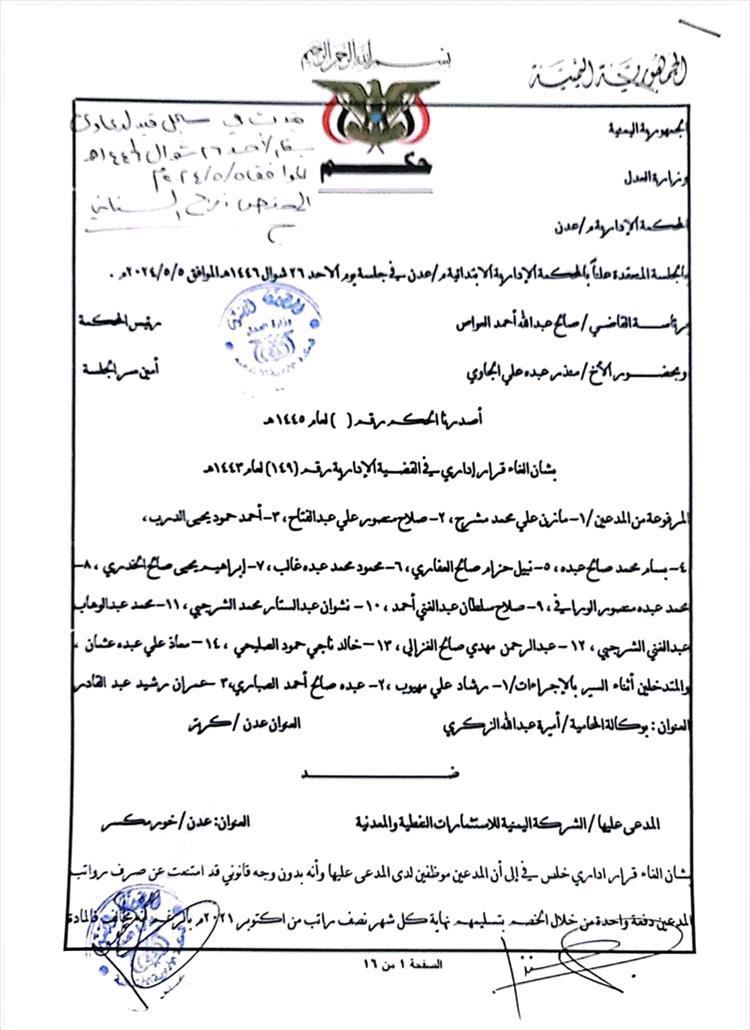 بسم الله الرحمن الرحيم
الجمهورية اليمنية
الجمهورية اليمنية
وزارة العدل
المحكمة الإدارية م/عدن
حكم
قيدت في سجل قيد الدعاوى
بتاريخ الأحد ٢٦ شوال ١٤٤٦هـ
الموافق ٢٠٢٤/٥/٥م
المختص
بالجلسة المنعقدة علناً بالمحكمة الإدارية الابتدائية م/عدن في جلسة يوم الاحد ٢٦ شوال ١٤٤٦هـ الموافق ٢٠٢٤/٥/٥م .
برئاسة القاضي/ صالح عبدالله أحمد العواس رئيس المحكمة
وبحضور الأخ/ منذر عبده علي الجاوي أمين سر الجلسة
أصدرنا الحكم رقم ( ) لعام ١٤٤٥هـ
بشان الغاء قرار إداري في القضية الإدارية رقم (١٤٩) لعام ١٤٤٣هـ
المرفوعة من المدعين/ ١- مازن علي محمد مشرح، ٢- صلاح منصور علي عبدالفتاح، ٣- أحمد حمود يحيى الدرب،
٤- بسام محمد صالح عبده، ٥- نبيل حزام صالح العفاري، ٦- محمود محمد عبده غالب، ٧- إبراهيم يحيى صالح الخدري، ٨-
محمد عبده منصور الورافي، ٩- صلاح سلطان عبدالغني أحمد، ١٠- نشوان عبدالستار محمد الشرجبي، ١١- محمد عبدالوهاب
عبدالغني الشرجبي، ١٢- عبدالرحمن مهدي صالح الغزالي، ١٣- خالد ناجي حمود الصليحي، ١٤- معاذ علي عبده عثمان ،
والمتدخلين أثناء السير بالإجراءات/ ١- رشاد علي مهيوب، ٢- عبده صالح أحمد الصباري، ٣- عمران رشيد عبد القادر
العنوان : بوكالة المحامية/ أميرة عبدالله الزكري العنوان عدن / كريتر
ضـــــــــد
المدعى عليها/ الشركة اليمنية للاستثمارات النفطية والمعدنية العنوان: عدن/ خورمكسر
بشان الغاء قرار اداري خلص في إلى أن المدعين موظفين لدى المدعى عليها وأنه بدون وجه قانوني قد امتنعت عن صرف رواتب
المدعين دفعة واحدة من خلال الخصم بتسليمهم نهاية كل شهر نصف راتب من اكتوبر ٢٠٢١م بالرغم
الصفحة ١ من ١٦